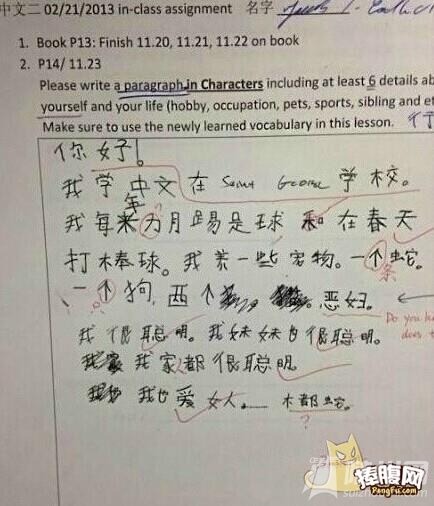 中文二 02/21/2013 in-class assignment 名字
1. Book P13: Finish 11.20, 11.21, 11.22 on book
2. P14/ 11.23
Please write a paragraph in Characters including at least 6 details ab
yourself and your life (hobby, occupation, pets, sports, sibling and et
Make sure to use the newly learned vocabulary in this lesson.
你好!
我学中文在 Saint George 学校。
年
我每 力月踢足球 和在春天
打棒球。我养一些宠物。一个蛇。
条
一个狗,两个 恶妇。
Do you k
does t
我很聪明。我妹妹也很聪明。
我家都很聪明。
我也爱女人。 木都蛇。
?
捧腹网
PengFu.com